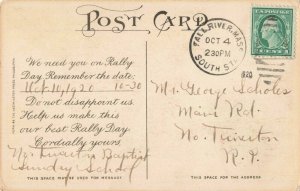 POST CARD
FALL RIVER, MASS.
OCT 4
230PM
1920
SOUTH STA.
We need you on Rally
Day. Remember the date:
Oct 10, 1920 10-30
Do not disappoint us.
Help us make this
our best Rally Day.
Cordially yours,
No. Tiverton Baptist
Sunday School
Mr. George Scholes
Main Rd.
No. Tiverton
R. I.
THIS SPACE MAY BE USED FOR MESSAGE
THIS SPACE FOR THE ADDRESS